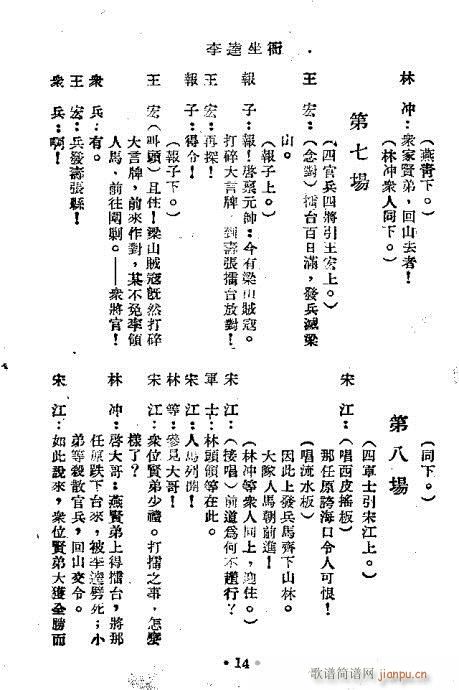 李逵坐衙
（燕青下。）
林　冲：衆家賢弟，回山去者！
（林冲衆人同下。）
第七場
（四官兵四將引王宏上。）
王　宏：（念對）擂台百日滿，發兵滅梁
山。
（報子上。）
報　子：報！啓稟元帥：今有梁山賊寇。
打碎大言牌，到壽張擂台放對！
王　宏：再探！
報　子：得令！
（報子下。）
王　宏：（叫頭）且住！梁山賊寇旣然打碎
大言牌，前來作對，某不免率領
人馬，前往圍剿。——衆將官！
衆　兵：有。
王　宏：兵發壽張縣！
衆　兵：啊！
（同下。）
第八場
（四軍士引宋江上。）
宋　江：（唱西皮搖板）
那任原誇海口令人可恨！
（唱流水板）
因此上發兵馬齊下山林。
大隊人馬朝前進！
（林冲等衆人同上，迎住。）
宋　江：（接唱）前道爲何不遵行？
軍　士：林頭領等在此。
宋　江：人馬列開！
林　等：參見大哥！
宋　江：衆位賢弟少禮。打擂之事，怎麼
樣了？
林　冲：啓大哥：燕賢弟上得擂台，將那
任原跌下台來，被李逵劈死；小
弟等殺散官兵，回山交令。
宋　江：如此說來，衆位賢弟大獲全勝而
·14·
歌谱简谱网
jianpu.cn